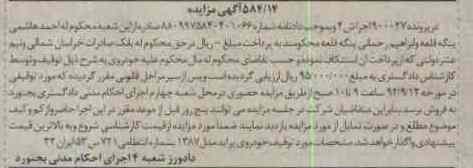 ۵۸۴/۱۴ آگهی مزایده
در پرونده ۹۰۰۰۲۷ اجرای ۴ وبموجب دادنامه شماره ۸۸۰۹۹۷۵۸۴۰۴۰۱۰۶۶ صادره از این شعبه محکوم له احمد هاشمی
پنگه قلعه وابراهیم رحمانی پنگه قلعه محکومند به پرداخت مبلغ - ریال در حق محکوم له بانک صادرات خراسان شمالی ونیم
عشر دولتی که از پرداخت آن استنکاف نموده و حسب تقاضای محکوم له مال محکوم علیه خودروی به شرح ذیل توقیف وتوسط
کارشناس دادگستری به مبلغ ۹۵/۰۰۰/۰۰۰ ریال ارزیابی گردیده است وپس از سیر مراحل قانونی مقرر گردیده که مورد توقیفی
در مورخه ۹۲/۹/۱۲ ساعت ۹ تا ۱۰ صبح از طریق مزایده حضوری در محل شعبه چهارم اجرای احکام مدنی دادگستری بجنورد
به فروش برسد بنابراین متقاضیان شرکت در جلسه مزایده می توانند پنج روز قبل از موعد مقرر در این اجرا حاضر واز کم و کیف
موضوع مطلع و در صورت تمایل از مورد مزایده بازدید نمایند ضمنا مورد مزایده از قیمت کارشناسی شروع وبه بالاترین قیمت
پیشنهادی واگذار خواهد شد. مشخصات مورد توقیف خودروی پراید مدل ۱۳۸۷ بشماره انتظامی ۷۲۱ س ۵۳ ایران ۳۲
دادورز شعبه ۴ اجرای احکام مدنی بجنورد